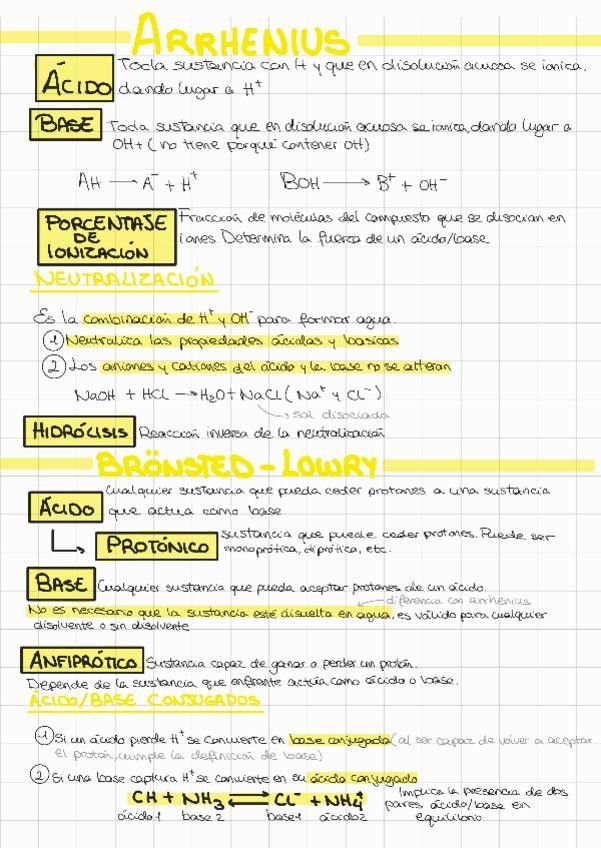 ARRHENIUS
ÁCIDO Toda sustancia con H y que en disolución acuosa se ioniza,
dando lugar a H⁺
BASE Toda sustancia que en disolución acuosa se ioniza, dando lugar a
OH+ (no tiene porqué contener OH)
AH → A⁻ + H⁺ BOH → B⁺ + OH⁻
PORCENTAJE DE IONIZACIÓN Fracción de moléculas del compuesto que se disocian en
iones. Determina la fuerza de un ácido/base
NEUTRALIZACIÓN
Es la combinación de H⁺ y OH⁻ para formar agua.
① Neutraliza las propiedades ácidas y basicas
② Los aniones y cationes del ácido y la base no se alteran
NaOH + HCL → H₂O + NaCl (Na⁺ y Cl⁻)
→ sal disociada
HIDRÓLISIS Reacción inversa de la neutralización
BRÖNSTED-LOWRY
ÁCIDO Cualquier sustancia que pueda ceder protones a una sustancia
que actua como base
PROTÓNICO sustancia que puede ceder protones. Puede ser
monoprótica, diprótica, etc.
BASE Cualquier sustancia que pueda aceptar protones de un ácido.
diferencia con arrhenius
No es necesario que la sustancia esté disuelta en agua, es válido para cualquier
disolvente o sin disolvente
ANFIPRÓTICO Sustancia capaz de ganar o perder un protón.
Depende de la sustancia que enfrente actúa como ácido o base.
ÁCIDO/BASE CONJUGADOS
① Si un ácido pierde H⁺ se convierte en base conjugada (al ser capaz de volver a aceptar
el protón, cumple la definición de base)
② Si una base captura H⁺ se convierte en su ácido conjugado
CH + NH₃ ⇌ CL⁻ + NH₄⁺ Implica la presencia de dos
pares ácido/base en
ácido1 base2 base1 ácido2 equilibrio